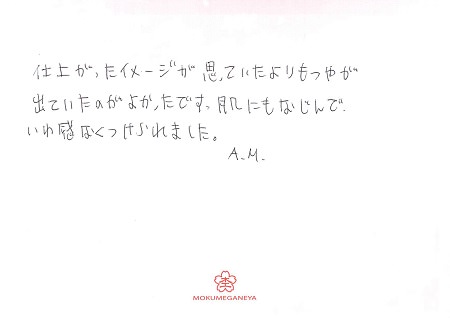 仕上がったイメージが思っていたよりもつやが
出ていたのがよかったです。肌にもなじんで、
いわ感なくつけられました。
A.M.
MOKUMEGANEYA